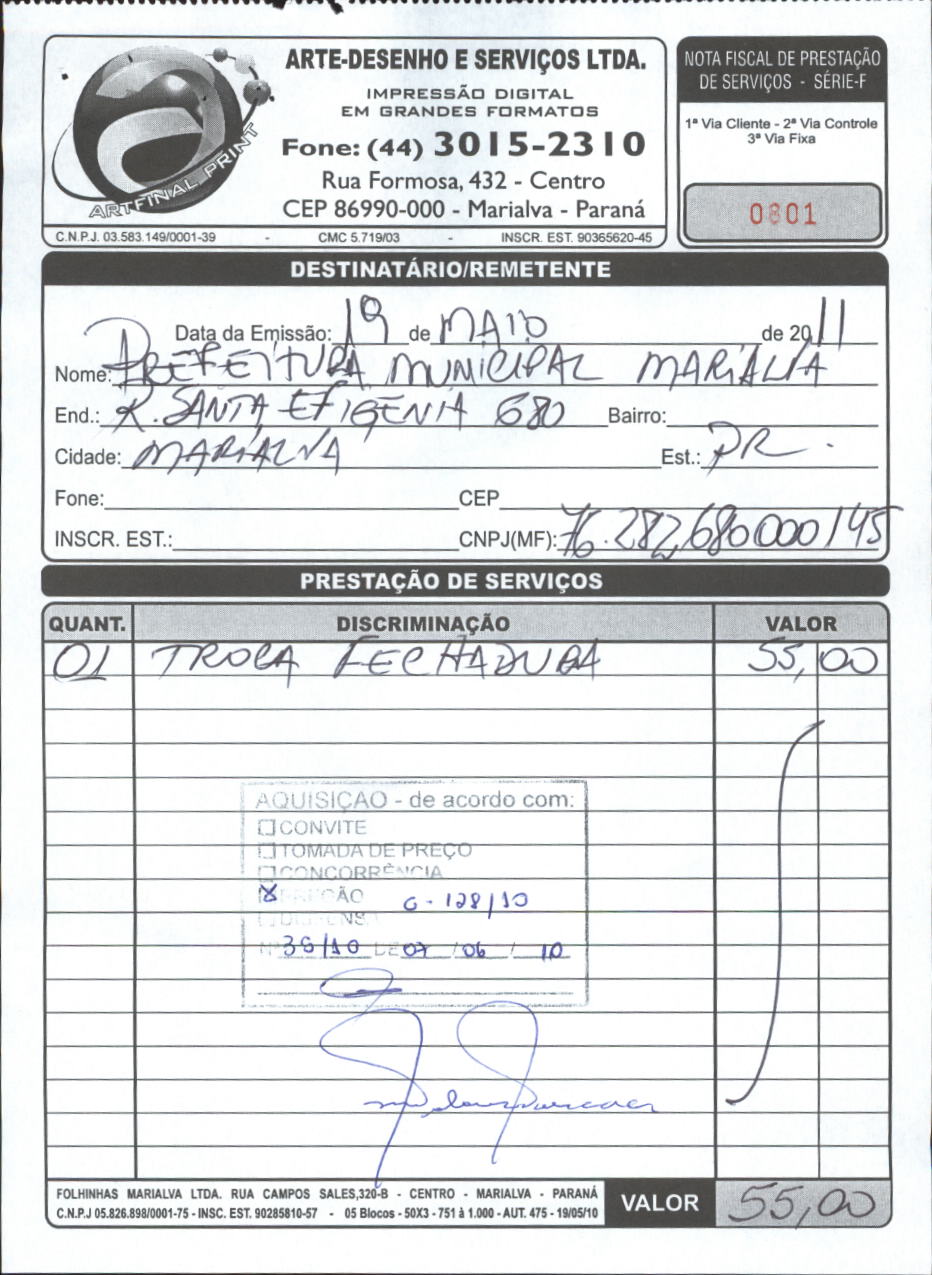 ARTFINAL PRINT
ARTE-DESENHO E SERVIÇOS LTDA.
IMPRESSÃO DIGITAL
EM GRANDES FORMATOS
Fone: (44) 3015-2310
Rua Formosa, 432 - Centro
CEP 86990-000 - Marialva - Paraná
C.N.P.J. 03.583.149/0001-39 - CMC 5.719/03 - INSCR. EST. 90365620-45
NOTA FISCAL DE PRESTAÇÃO
DE SERVIÇOS - SÉRIE-F
1ª Via Cliente - 2ª Via Controle
3ª Via Fixa
0801
DESTINATÁRIO/REMETENTE
Data da Emissão: 19 de MAIO de 2011
Nome: PREFEITURA MUNICIPAL MARIALVA
End.: R. SANTA EFIGENIA 680 Bairro:
Cidade: MARIALVA Est.: PR
Fone: CEP
INSCR. EST.: CNPJ(MF): 76.282.680000/45
PRESTAÇÃO DE SERVIÇOS
QUANT. DISCRIMINAÇÃO VALOR
01 TROCA FECHADURA 55,00
AQUISIÇÃO - de acordo com:
CONVITE
TOMADA DE PREÇO
CONCORRÊNCIA
PREGÃO 128/10
DISPENSA
Nº 38/10 DE 07/06/10
FOLHINHAS MARIALVA LTDA. RUA CAMPOS SALES,320-B - CENTRO - MARIALVA - PARANÁ
C.N.P.J 05.826.898/0001-75 - INSC. EST. 90285810-57 - 05 Blocos - 50X3 - 751 à 1.000 - AUT. 475 - 19/05/10
VALOR 55,00